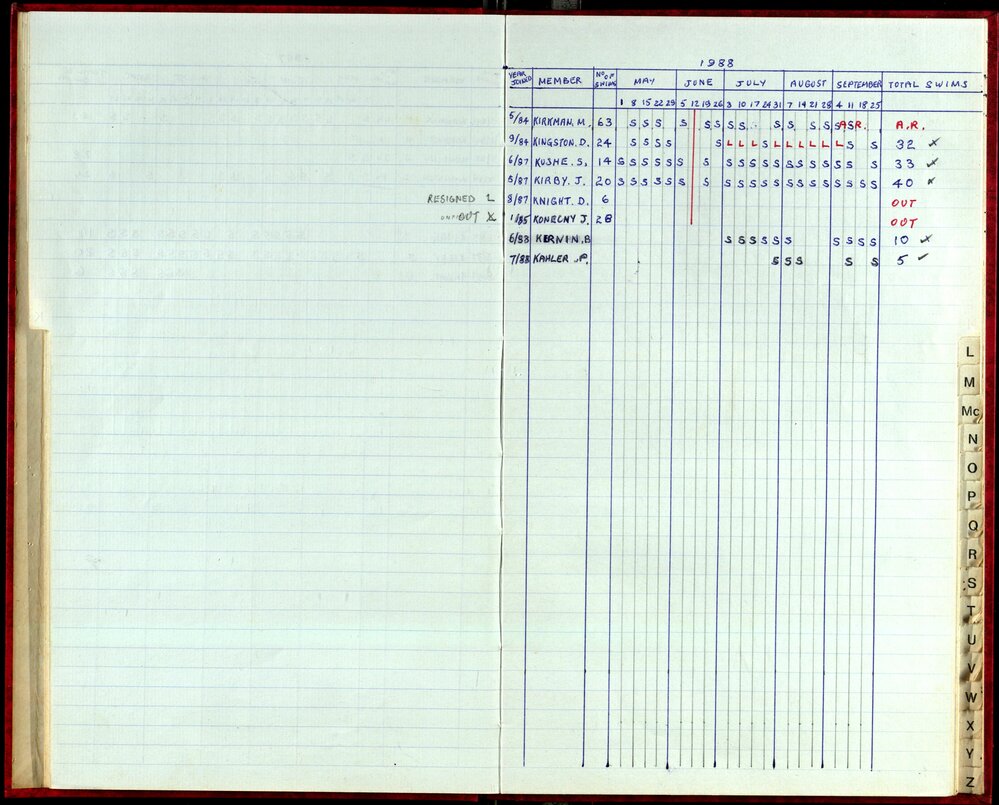 1988
YEAR JOINED MEMBER Nº OF SWIMS MAY JUNE JULY AUGUST SEPTEMBER TOTAL SWIMS
1 8 15 22 29 5 12 19 26 3 10 17 24 31 7 14 21 28 4 11 18 25
5/84 KIRKMAN. M. 63 S S S S S S S S S S S S A.R. A.R.
9/84 KINGSTON. D. 24 S S S S S L L L S L L L L L L S S 32
6/87 KUSHE. S. 14 S S S S S S S S S S S S S S S S S S S
33
5/87 KIRBY. J. 20 S S S S S S S S S S S S S S S S S S S S 40
RESIGNED L 8/87 KNIGHT. D. 6 OUT
OUT X 1/85 KONECNY J. 28 OUT
6/88 KERVIN. B S S S S S S S S S S 10
7/88 KAHLER .P. S S S S S 5 ✓
L
M
Mc
N
O
P
Q
R
S
T
U
V
W
X
Y
Z